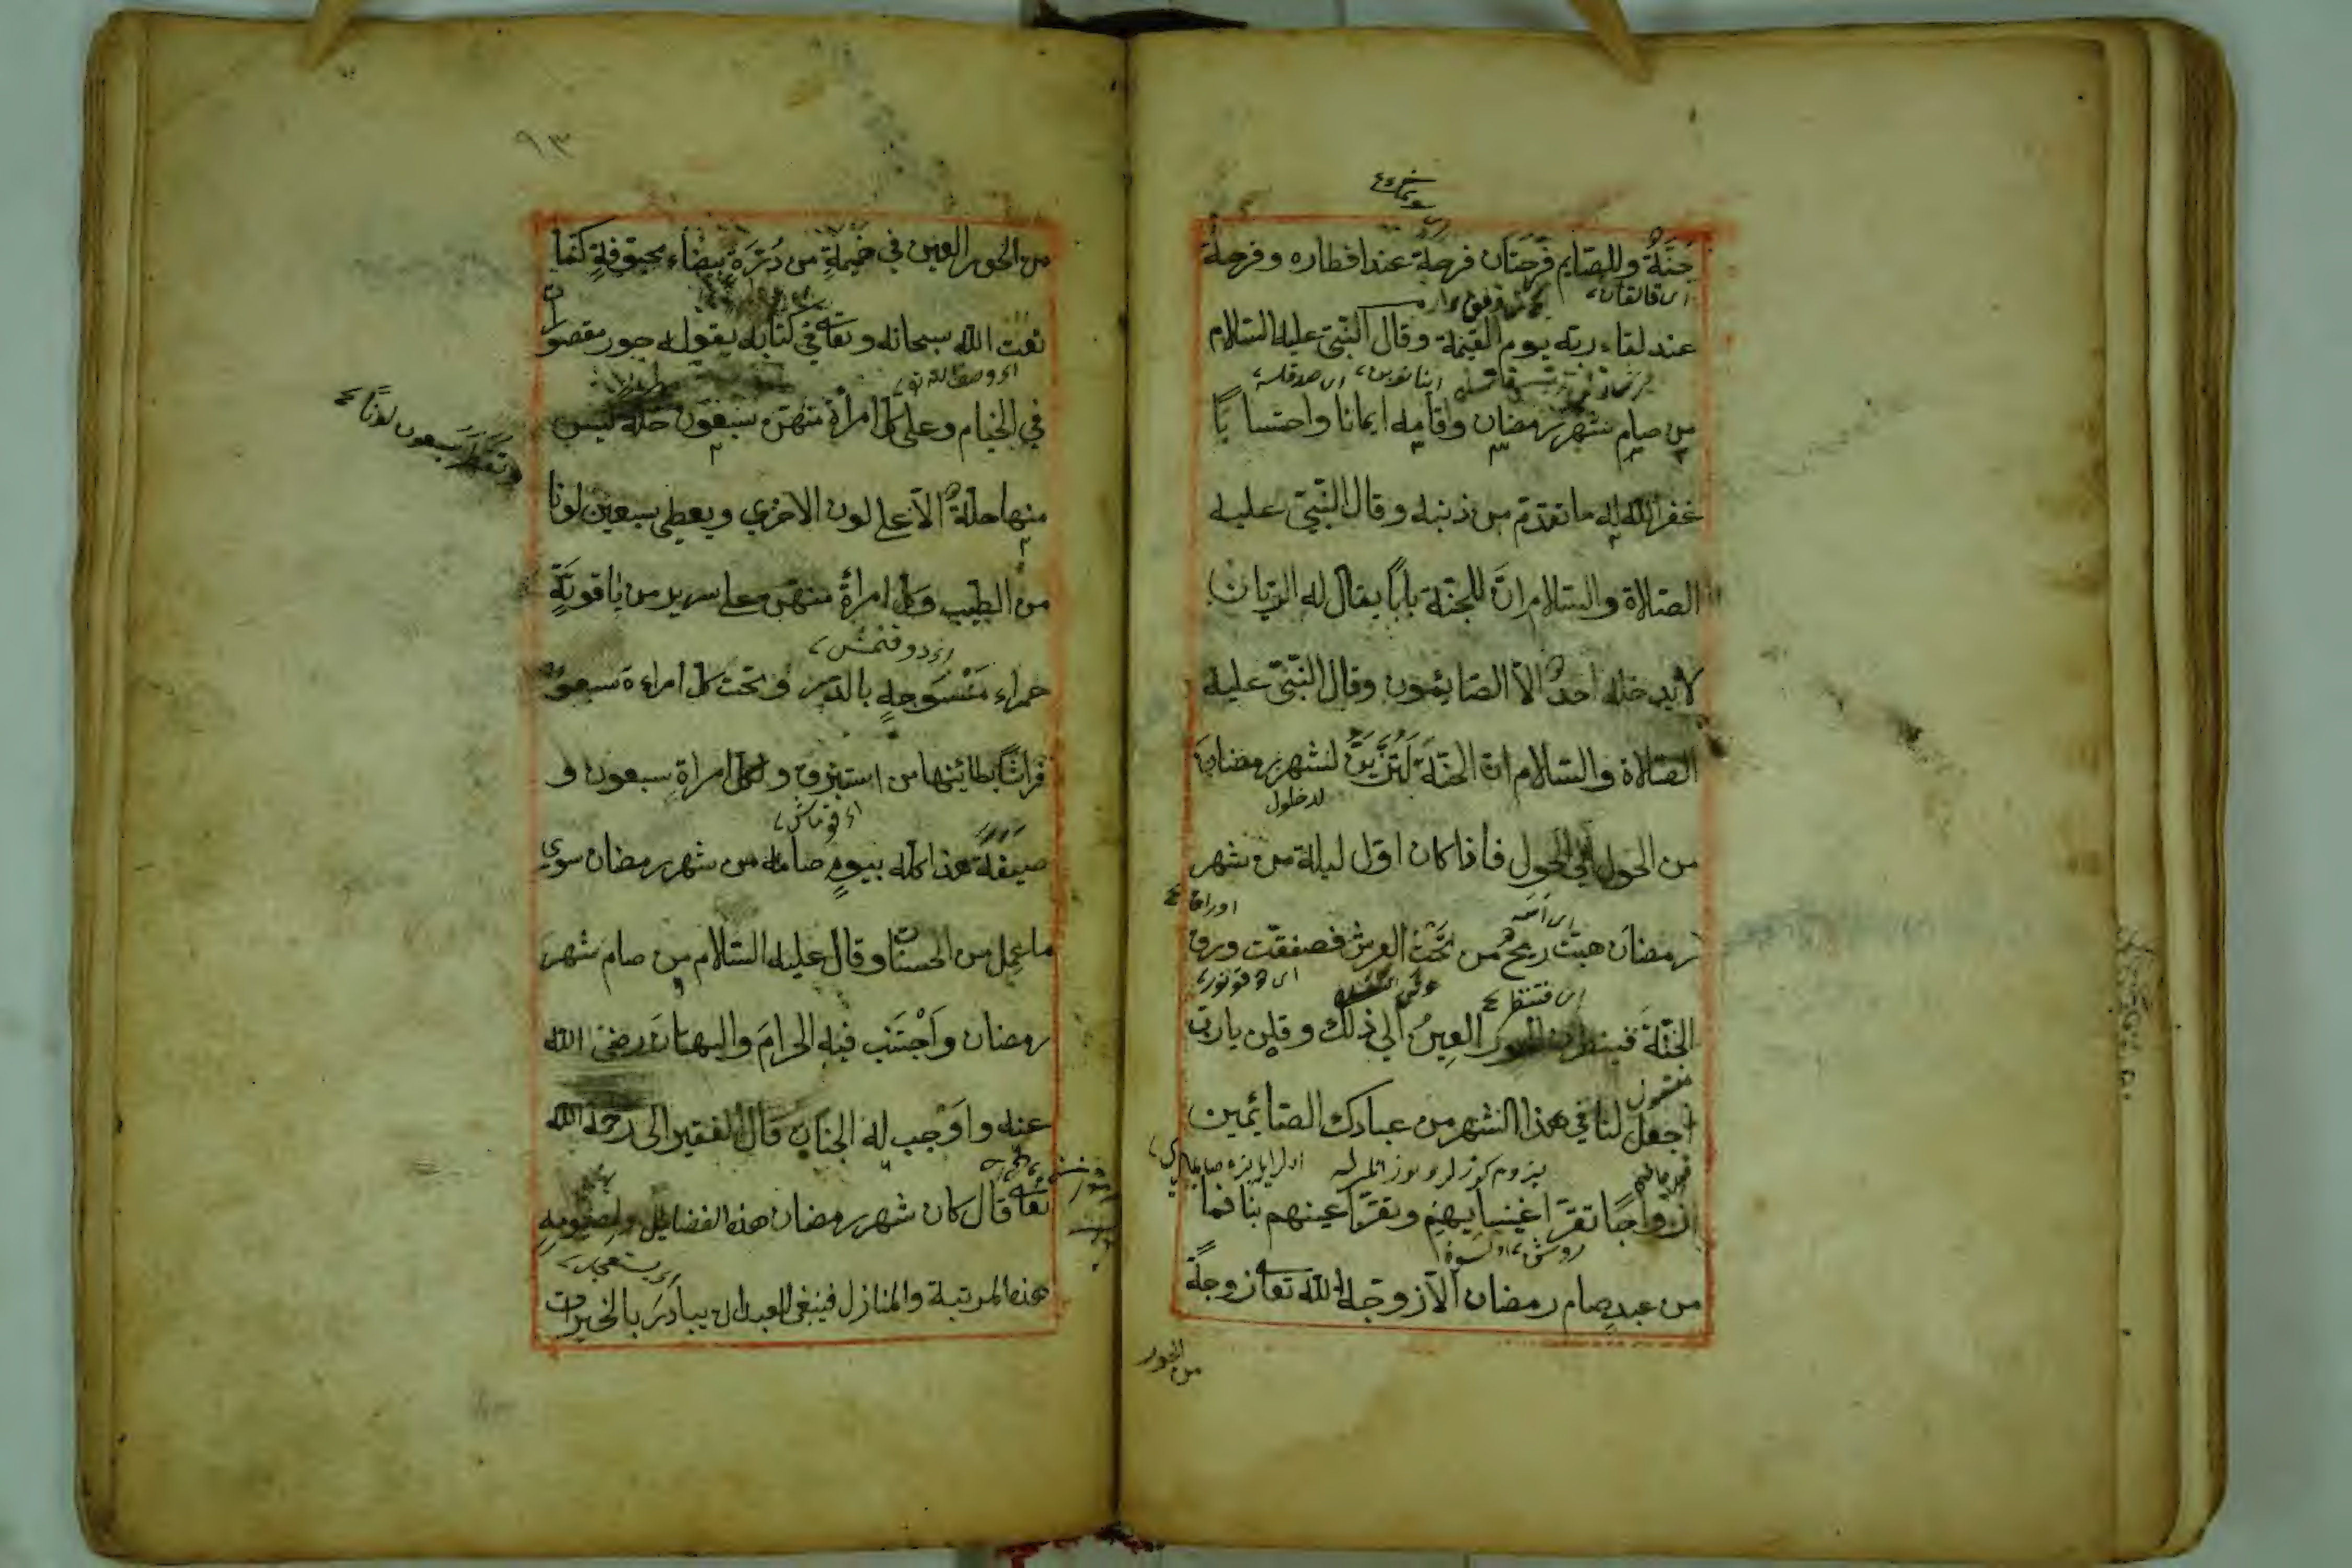 جنة وللصايم فرحتان فرحة عند افطاره وفرحة
اى قالقان
عند لقاء ربه يوم القيمة وقال النبى عليه السلام
من صام شهر رمضان واقامه ايمانا واحتسابا
غفر الله له ما تقدم من ذنبه وقال النبى عليه
الصلاة والسلام ان للجنة بابا يقال له الريان
لا يدخله احد الا الصايمون وقال النبى عليه
الصلاة والسلام ان الجنة لتزين لشهر رمضان
لدخول
من الحول الى الحول فاذا كان اول ليلة من شهر
رمضان هبت ريح من تحت العرش فصفقت ورق
الجنة فينظرن الحور العين الى ذلك وقلن يا رب
اجعل لنا فى هذا الشهر من عبادك الصايمين
ازواجا تقر اعيننا بهم وتقر اعينهم بنا فما
من عبد صام رمضان الا زوجه الله تعا زوجة
من الحور
٩٣
من الحور العين فى خيمة من درة بيضاء مجوفة كما
نعت الله سبحانه وتعا فى كتابه بقوله حور مقصورات
فى الخيام وعلى كل امرأة منهن سبعون حلة ليس
منها حلة الا على لون الاخرى ويعطى سبعين لونا
وتعطر سبعون لونا
من الطيب وكل امرأة منهن على سرير من ياقوتة
حمراء منسوجة بالدر وتحت كل امراءة سبعون
فراشا بطائنها من استبرق ولكل امراة سبعون و
صيفة هذا كله بيوم صامه من شهر رمضان سوى
ما عمل من الحسنات وقال عليه السلام من صام شهر
رمضان واجتنب فيه الحرام والبهتان رضى الله
عنه واوجب له الجنان قال الفقير الى رحمة الله
تعا قال كان شهر رمضان هذه الفضايل ولصيومه
هذه المرتبة والمنازل فينبغى للعبد ان يبادر بالخيرات